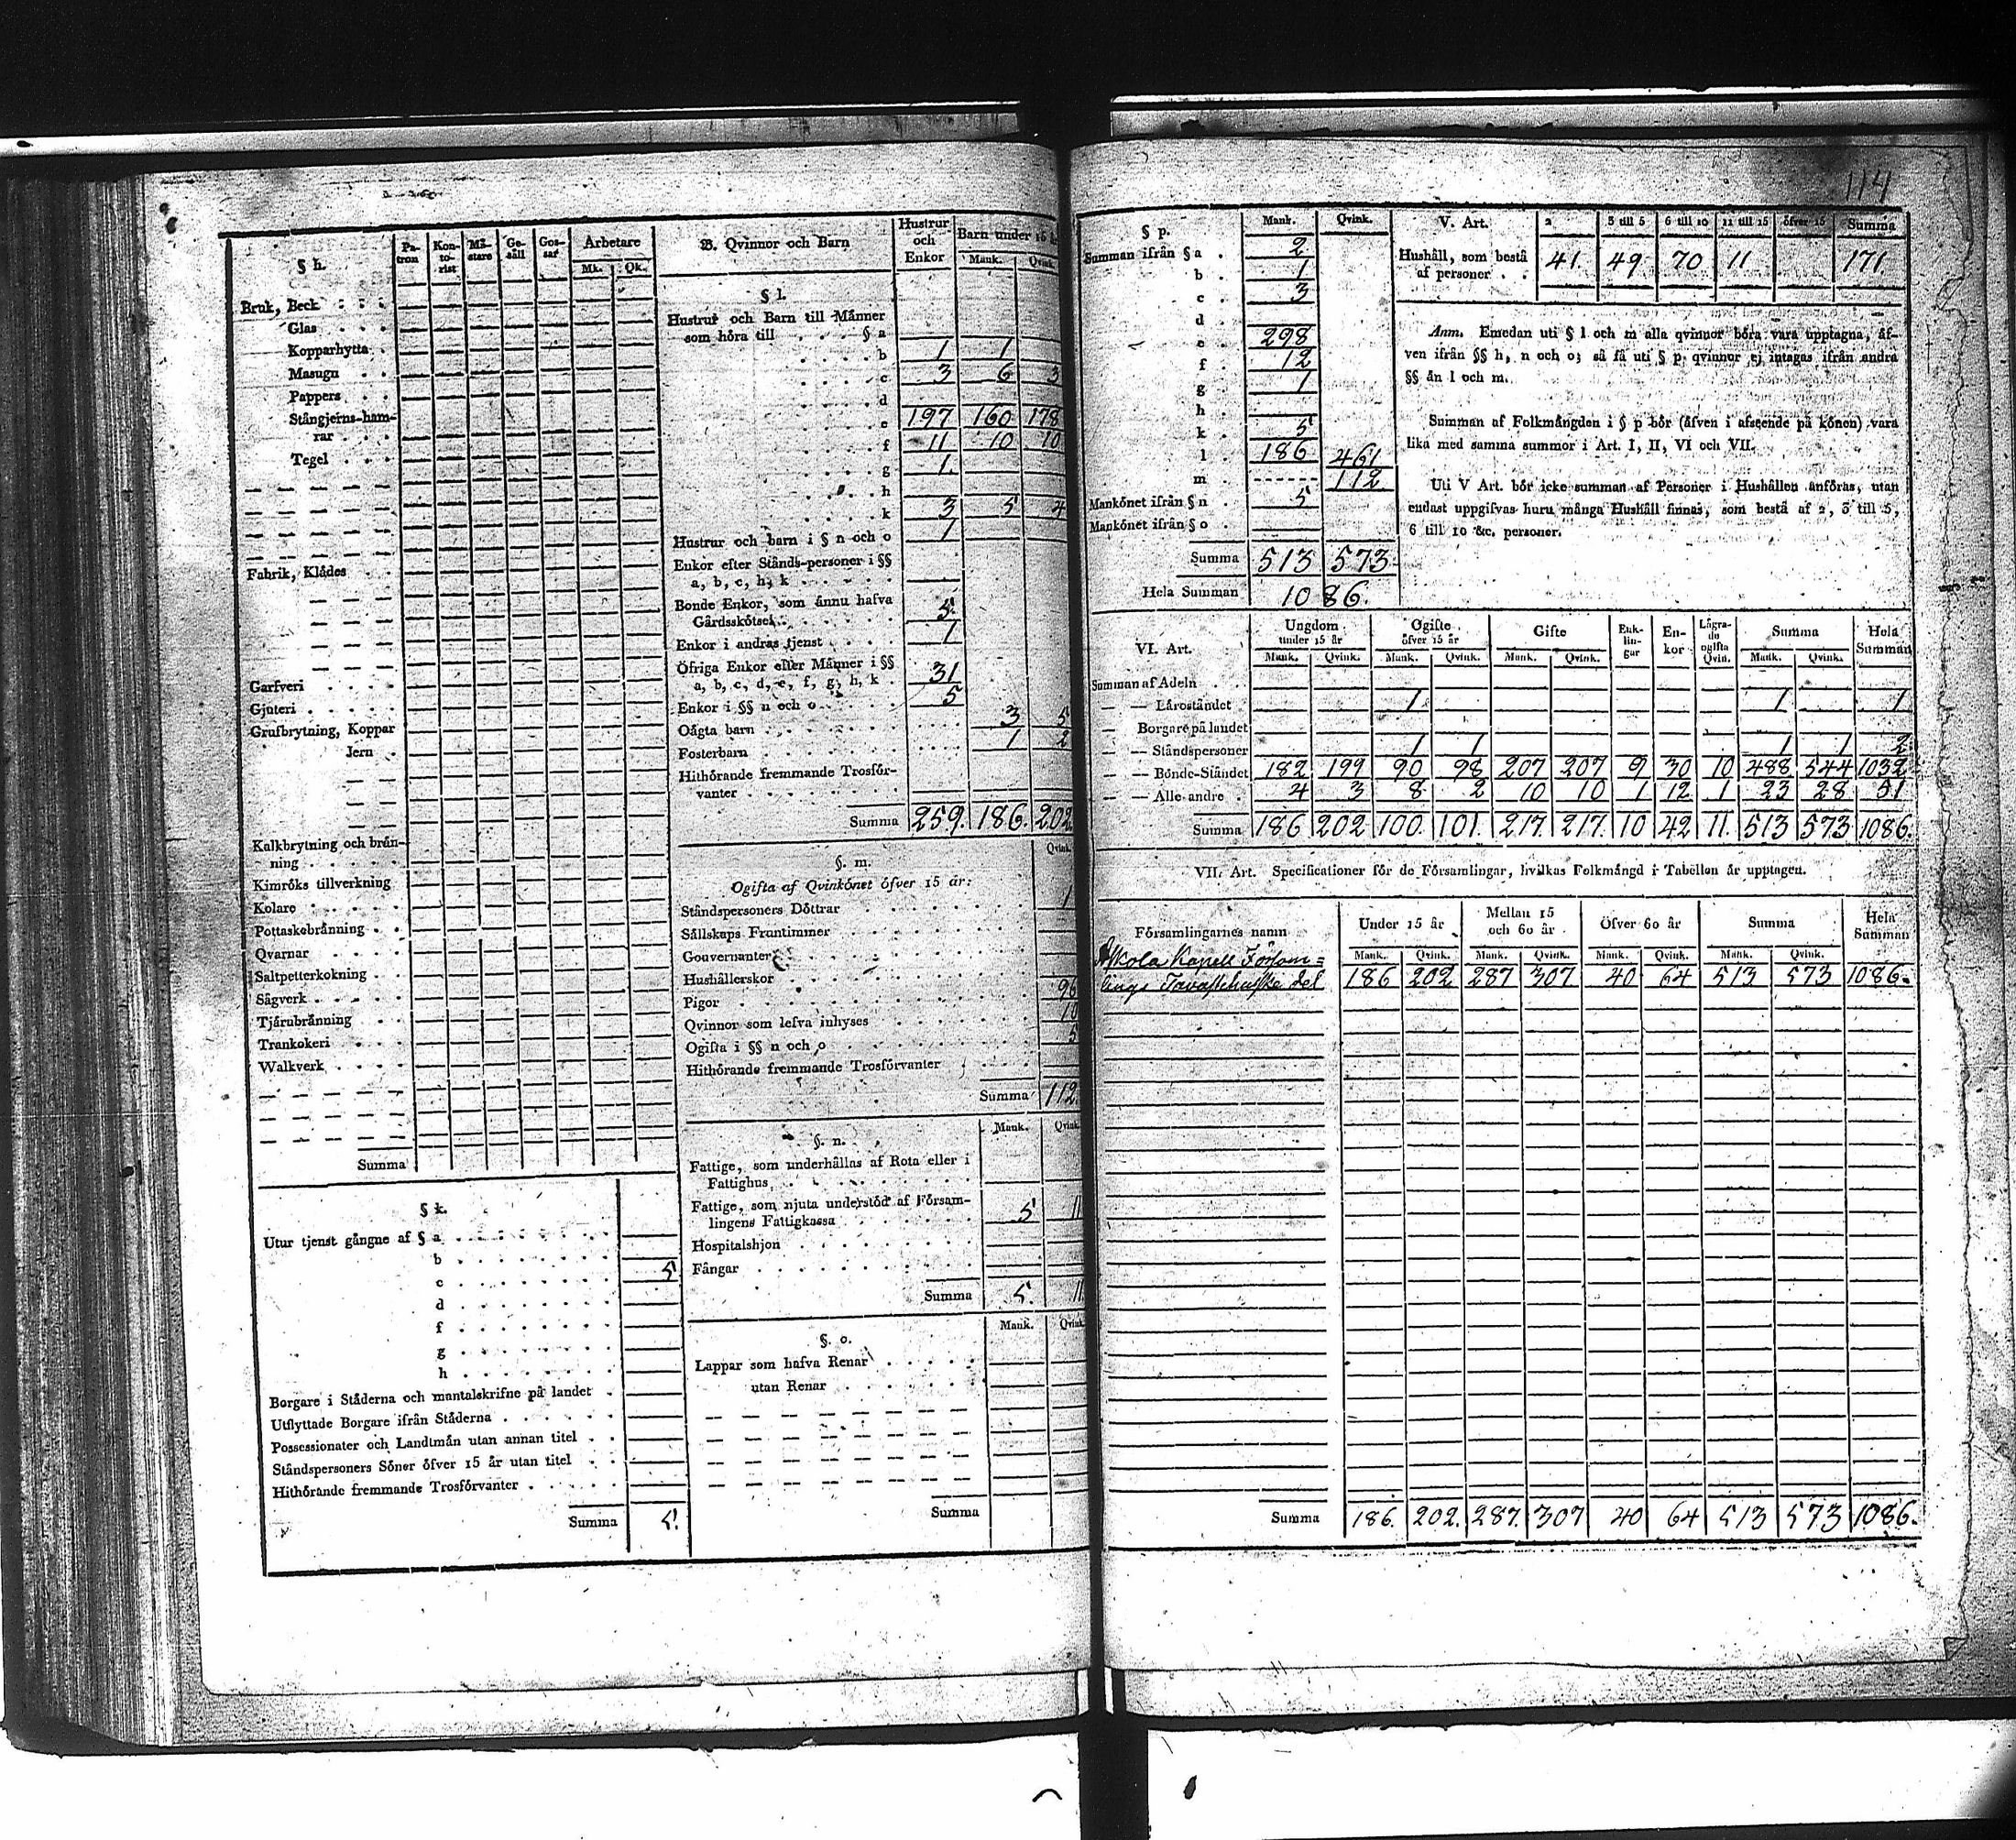 114
§ h.
Pa-tron Kon-to-rist Må-stare Ge-såll Gos-sar Arbetare
Mk. Qk.
Bruk, Beck
Glas
Kopparhytta
Masugn
Pappers
Stångjerns-ham-
rar
Tegel
Fabrik, Klådes
Garfveri
Gjuteri
Grufbrytning, Koppar
Jern
Kalkbrytning och brån-
ning
Kimröks tillverkning
Kolare
Pottaskebrånning
Qvarnar
Saltpetterkokning
Sågverk
Tjårubrånning
Trankokeri
Walkverk
Summa
§ k.
Utur tjenst gångne af § a
b
c 5
d
f
g
h
Borgare i Ståderna och mantalskrifne på landet
Utflyttade Borgare ifrån Ståderna
Possessionater och Landtmån utan annan titel
Ståndspersoners Söner öfver 15 år utan titel
Hithörande fremmande Trosförvanter
Summa 5.
B. Qvinnor och Barn
Hustrur och Enkor
Barn under 15 år
Mank. Qvink.
§ l.
Hustrur och Barn till Männer
som höra till § a
b 1 1
c 3 6 3
d
e 197 160 178
f 11 10 10
g 1
h
k 3 5 4
Hustrur och barn i § n och o 1
Enkor efter Stånds-personer i §§
a, b, c, h, k
Bonde Enkor, som ännu hafva
Gårdsskötsel 5
Enkor i andras tjenst 1
Öfriga Enkor efter Männer i §§
a, b, c, d, e, f, g, h, k 31
Enkor i §§ n och o 5
Oågta barn 3 5
Fosterbarn 1 2
Hithörande fremmande Trosför-
vanter
Summa 259. 186. 202
§. m.
Qvink.
Ogifta af Qvinkönet öfver 15 år:
Ståndspersoners Döttrar 1
Sällskaps Fruntimmer
Gouvernanter
Hushållerskor
Pigor 96
Qvinnor som lefva inhyses 10
Ogifta i §§ n och o 5
Hithörande fremmande Trosförvanter
Summa 112
§. n.
Mank. Qvink.
Fattige, som underhållas af Rota eller i
Fattighus
Fattige, som njuta understöd af Försam-
lingens Fattigkassa 5 11
Hospitalshjon
Fångar
Summa 5. 11
§. o.
Mank. Qvink.
Lappar som hafva Renar
utan Renar
Summa
§ p.
Mank. Qvink.
Summan ifrån § a 2
b 1
c 3
d
e 298
f 12
g 1
h
k 5
l 186 461
m 112
Mankönet ifrån § n 5
Mankönet ifrån § o
Summa 513 573
Hela Summan 1086.
V. Art. 2 3 till 5 6 till 10 11 till 15 öfver 15 Summa
Hushåll, som bestå
af personer 41. 49 70 11 171
Anm. Emedan uti § l och m alla qvinnor böra vara upptagna, äf-
ven ifrån §§ h, n och o; så få uti § p. qvinnor ej intagas ifrån andra
§§ än l och m.
Summan af Folkmångden i § p bör (äfven i afseende på könen) vara
lika med samma summor i Art. I, II, VI och VII.
Uti V Art. bör icke summan af Personer i Hushållen anföras, utan
endast uppgifvas huru många Hushåll finnas, som bestå af 2, 3 till 5,
6 till 10 &c. personer.
VI. Art. Ungdom under 15 år Ogifte öfver 15 år Gifte Enk-lin-gar En-kor Lägra-de ogifta Qvin. Summa Hela Summan
Mank. Qvink. Mank. Qvink. Mank. Qvink. Mank. Qvink.
Summan af Adeln
— — Låroståndet 1 1 1
— Borgare på landet
— — Ståndspersoner 1 1 1 1 2
— — Bonde-Ståndet 182 199 90 98 207 207 9 30 10 488 544 1032
— — Alle andre 4 3 8 2 10 10 1 12 1 23 28 51
Summa 186 202 100. 101. 217. 217. 10 42 11. 513 573 1086.
VII. Art. Specificationer för de Församlingar, hvilkas Folkmångd i Tabellen är upptagen.
Församlingarnes namn Under 15 år Mellan 15 och 60 år Öfver 60 år Summa Hela Summan
Mank. Qvink. Mank. Qvink. Mank. Qvink. Mank. Qvink.
Kapell Försam=
lings Tavastehuske del 186 202 287 307 40 64 513 573 1086.
Summa 186. 202. 287. 307 40 64 513 573 1086.